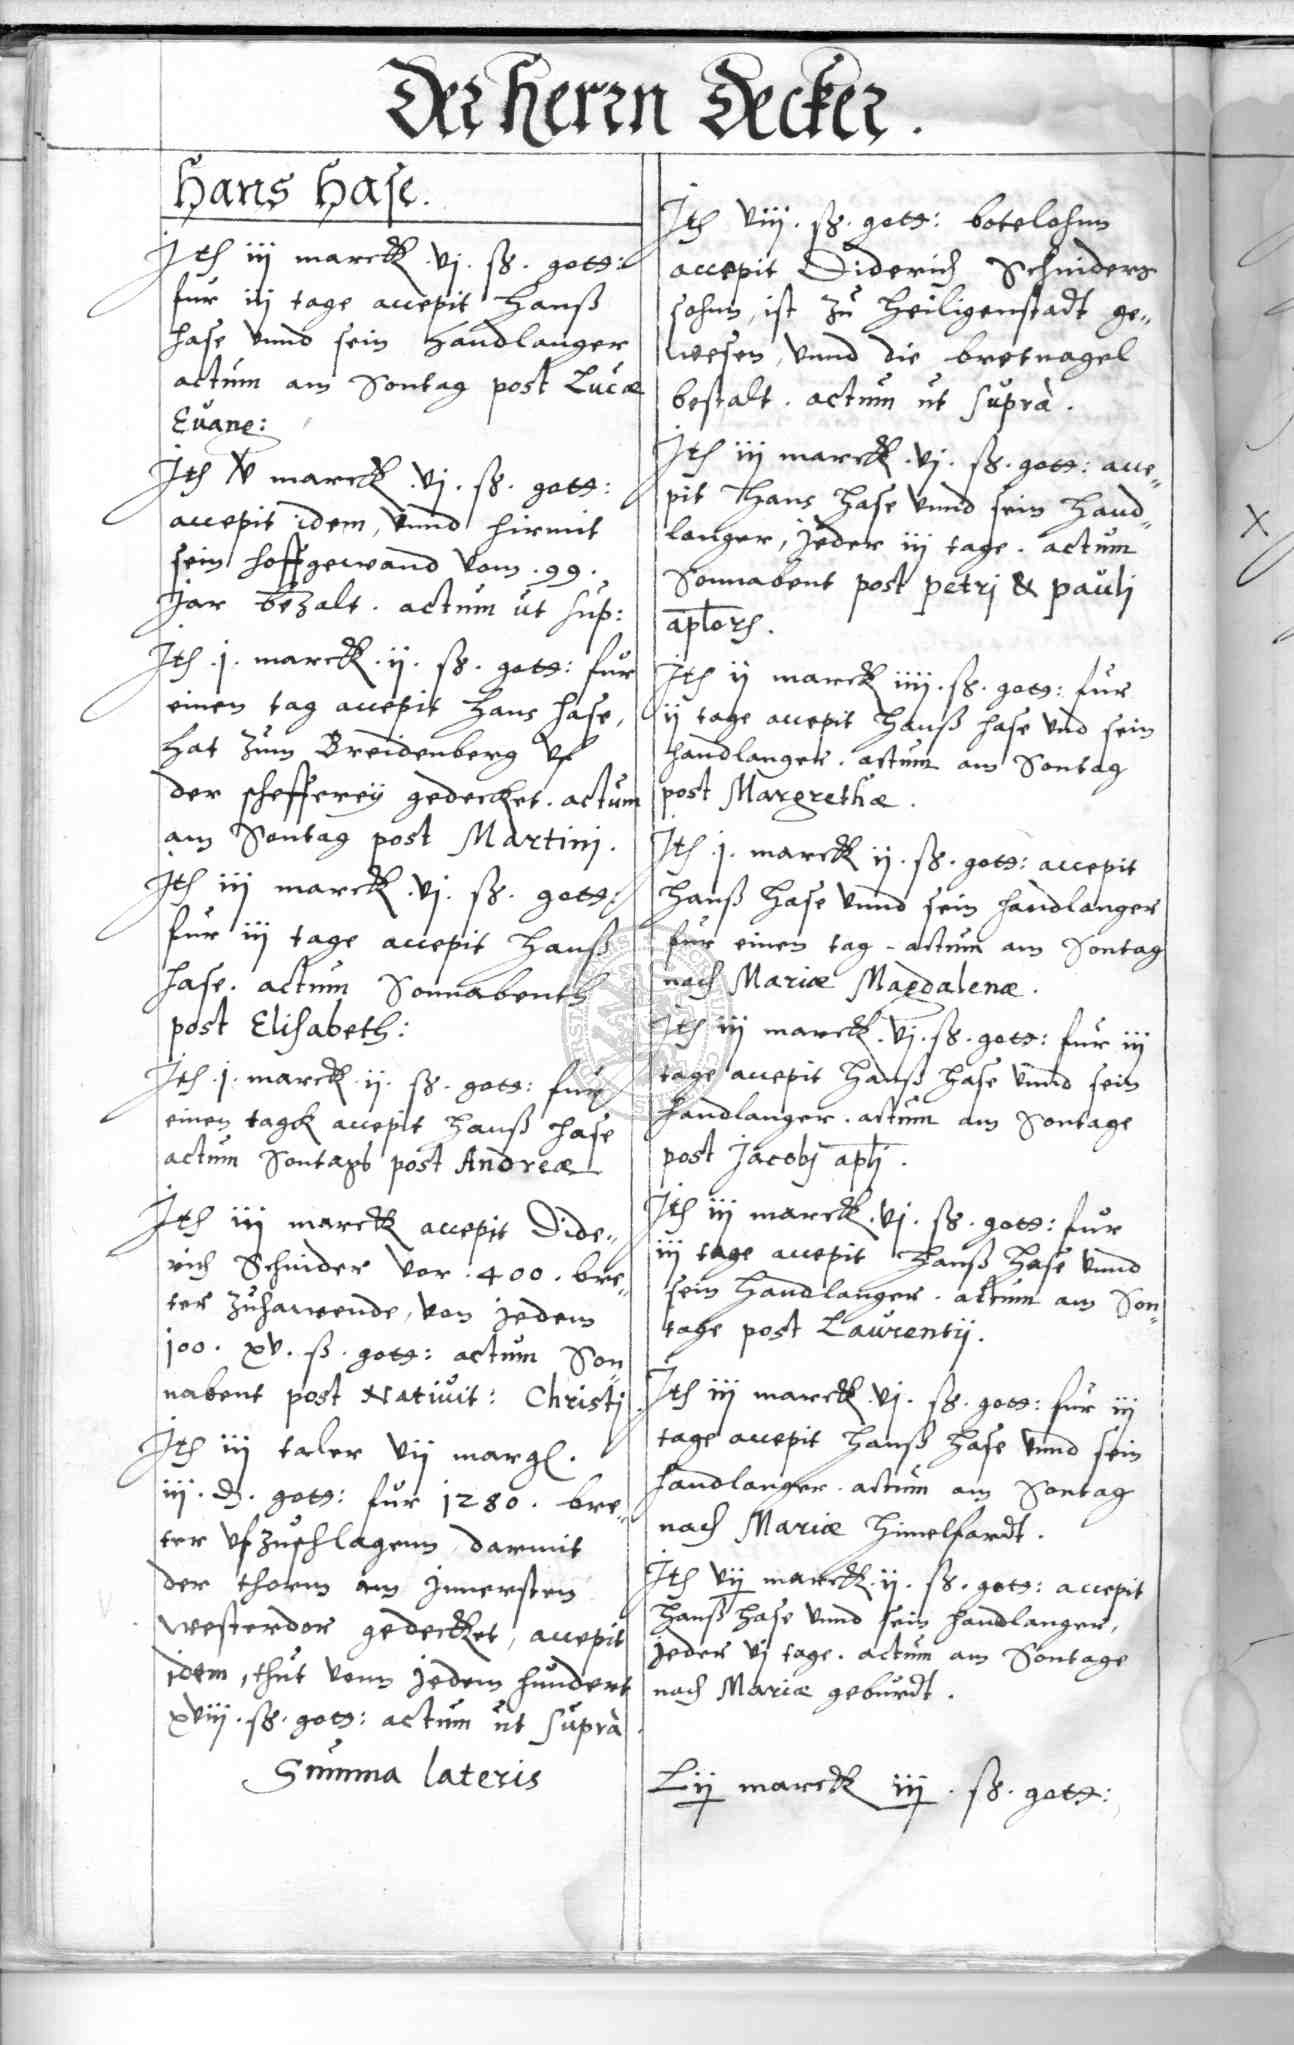 Der Herrn Decker.
Hans Hase.
Jtem iij marck .vj. ß. gott:
fur iij tage accepit Hanß
hase vnnd sein handlanger
actum am Sontag post Lucæ
Euang:
Jtem V marck .vj. ß. gott:
accepit idem, vnnd hirmit
sein hoffgewand vom .99.
Jar bezalt. actum ut sup:
Jtem .j. marck .ij. ß. gott: fur
einen tag accepit Hans hase,
hat zum Breidenberg vf
der schefferey gedecket. actum
am Sontag post Martinj.
Jtem iij marck .vj. ß. gott:
fur iij tage accepit Hanß
hase. actum Sonnabents
post Elisabeth:
Jtem .j. marck .ij. ß. gott: fur
einen tagk accepit Hanß hase
actum Sontags post Andreæ
Jtem iij marck accepit Dide„
rich Schnider vor .400. bre„
ter zuhawende, von jedem
100. xv. ß. gott: actum Son„
nabent post Nativit: Christj.
Jtem iij taler vij margk.
iij. d. gott: fur 1280. bre„
ter vfzuschlagenn darmit
der thorm am Jnnersten
westerdor gedecket, accepit
idem, thut vonn jedem hundert
xviij. ß. gott: actum ut suprà.
Summa lateris
Jtem viij. ß. gott: botelohnn
accepit Diderich Schniders
sohnn, ist zu Heiligenstadt ge„
wesen, vnnd die bretnagel
bestalt. actum ut suprà.
Jtem iij marck .vj. ß. gott: acce„
pit Hans hase vnnd sein hand„
langer, jeder iij tage. actum
Sonnabent post petrj & paulj
aplorum.
Jtem ij marck iiij. ß. gott: fur
ij tage accepit Hanß hase vnd sein
handlanger. actum am Sontag
post Margrethæ.
Jtem .j. marck ij. ß. gott: accepit
Hanß hase vnnd sein handlanger
fur einen tag. actum am Sontag
nach Mariæ Magdalenæ.
Jtem iij marck .vj. ß. gott: fur iij
tage accepit Hanß hase vnnd sein
handlanger. actum am Sontage
post Jacobj aplj.
Jtem iij marck .vj. ß. gott: fur
iij tage accepit Hanß hase vnnd
sein handlanger. actum am Son„
tage post Laurentij.
Jtem iij marck .vj. ß. gott: fur iij
tage accepit Hanß hase vnnd sein
handlanger. actum am Sontag
nach Mariæ Himelfardt.
Jtem vij marck .ij. ß. gott: accepit
Hanß hase vnnd sein handlanger,
jeder vj tage. actum am Sontage
nach Mariæ geburdt.
Lij marck iij. ß. gott: